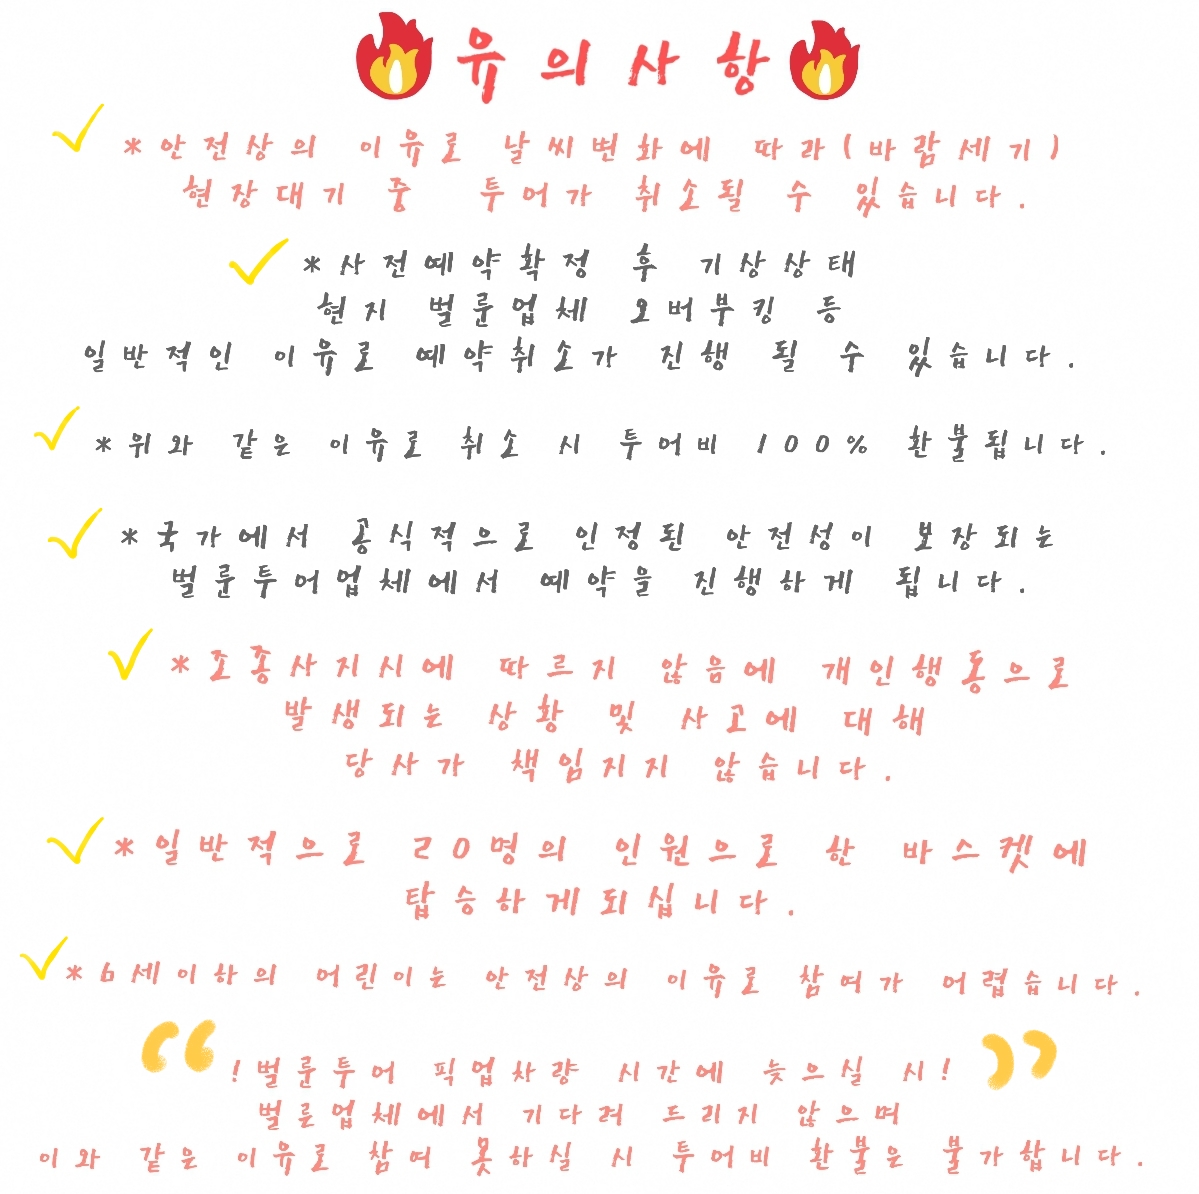 유의사항
*안전상의 이유로 날씨변화에 따라(바람세기)
현장대기 중 투어가 취소될 수 있습니다.
*사전예약확정 후 기상상태
현지 벌룬업체 오버부킹 등
일반적인 이유로 예약취소가 진행 될 수 있습니다.
*위와 같은 이유로 취소 시 투어비 100% 환불됩니다.
*국가에서 공식적으로 인정된 안전성이 보장되는
벌룬투어업체에서 예약을 진행하게 됩니다.
*조종사지시에 따르지 않음에 개인행동으로
발생되는 상황 및 사고에 대해
당사가 책임지지 않습니다.
*일반적으로 20명의 인원으로 한 바스켓에
탑승하게되십니다.
*6세이하의 어린이는 안전상의 이유로 참여가 어렵습니다.
“ !벌룬투어 픽업차량 시간에 늦으실 시! ”
벌룬업체에서 기다려 드리지 않으며
이와 같은 이유로 참여 못하실 시 투어비 환불은 불가합니다.